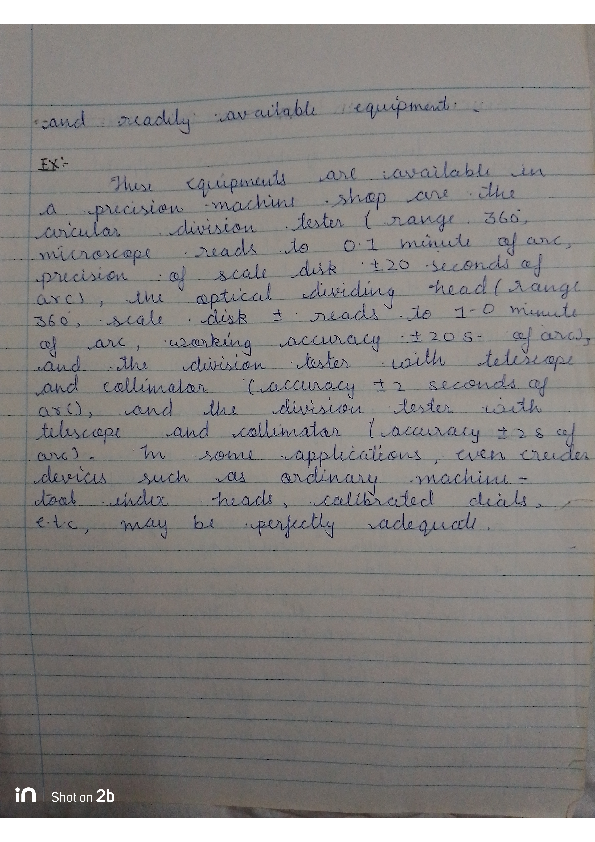 and readily available equipment.
EX:-
These equipments are available in
a precision machine shop are the
circular division tester ( range 360°,
microscope reads to 0.1 minute of arc,
precision of scale disk ±20 seconds of
arc), the optical dividing head ( range
360°, scale disk ± reads to 1.0 minute
of arc, working accuracy ±20 s. of arc),
and the division tester with telescope
and collimator (accuracy ±2 seconds of
arc), and the division tester with
telescope and collimator ( accuracy ±2s of
arc). In some applications, even cruder
devices such as ordinary machine-
tool index heads, calibrated dials,
etc, may be perfectly adequate.
in Shot on 2b